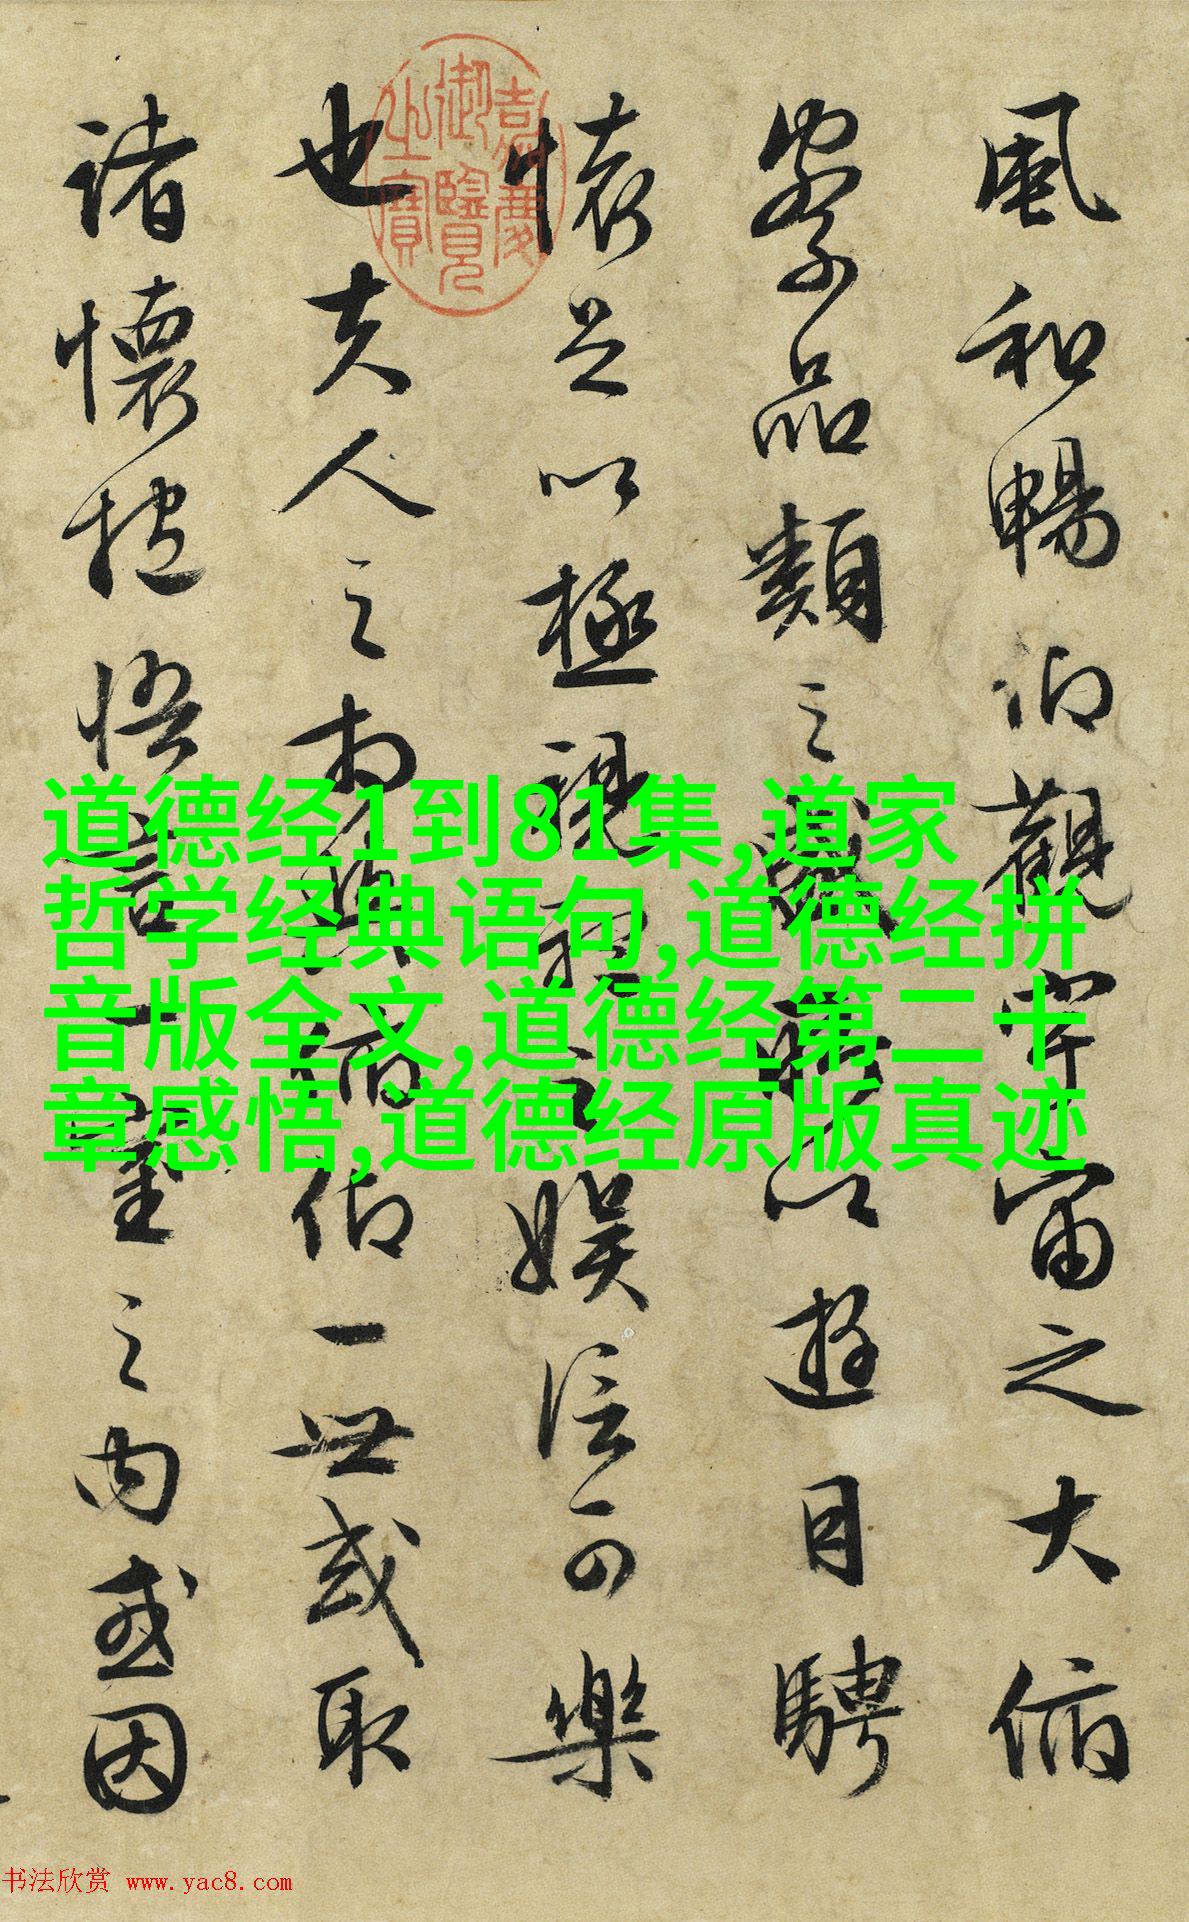 風和暢仰觀宇宙之大俯
察品類之盛所以遊目騁
懷足以極視聽之娛信可樂
也夫人之相與俯仰一世或取
諸懷抱悟言一室之內或因
嘉慶
御覽
之寶
道德经1到81集,道家
哲学经典语句,道德经拼
音版全文,道德经第二十
章感悟,道德经原版真迹
书法欣赏 www.yac8.com